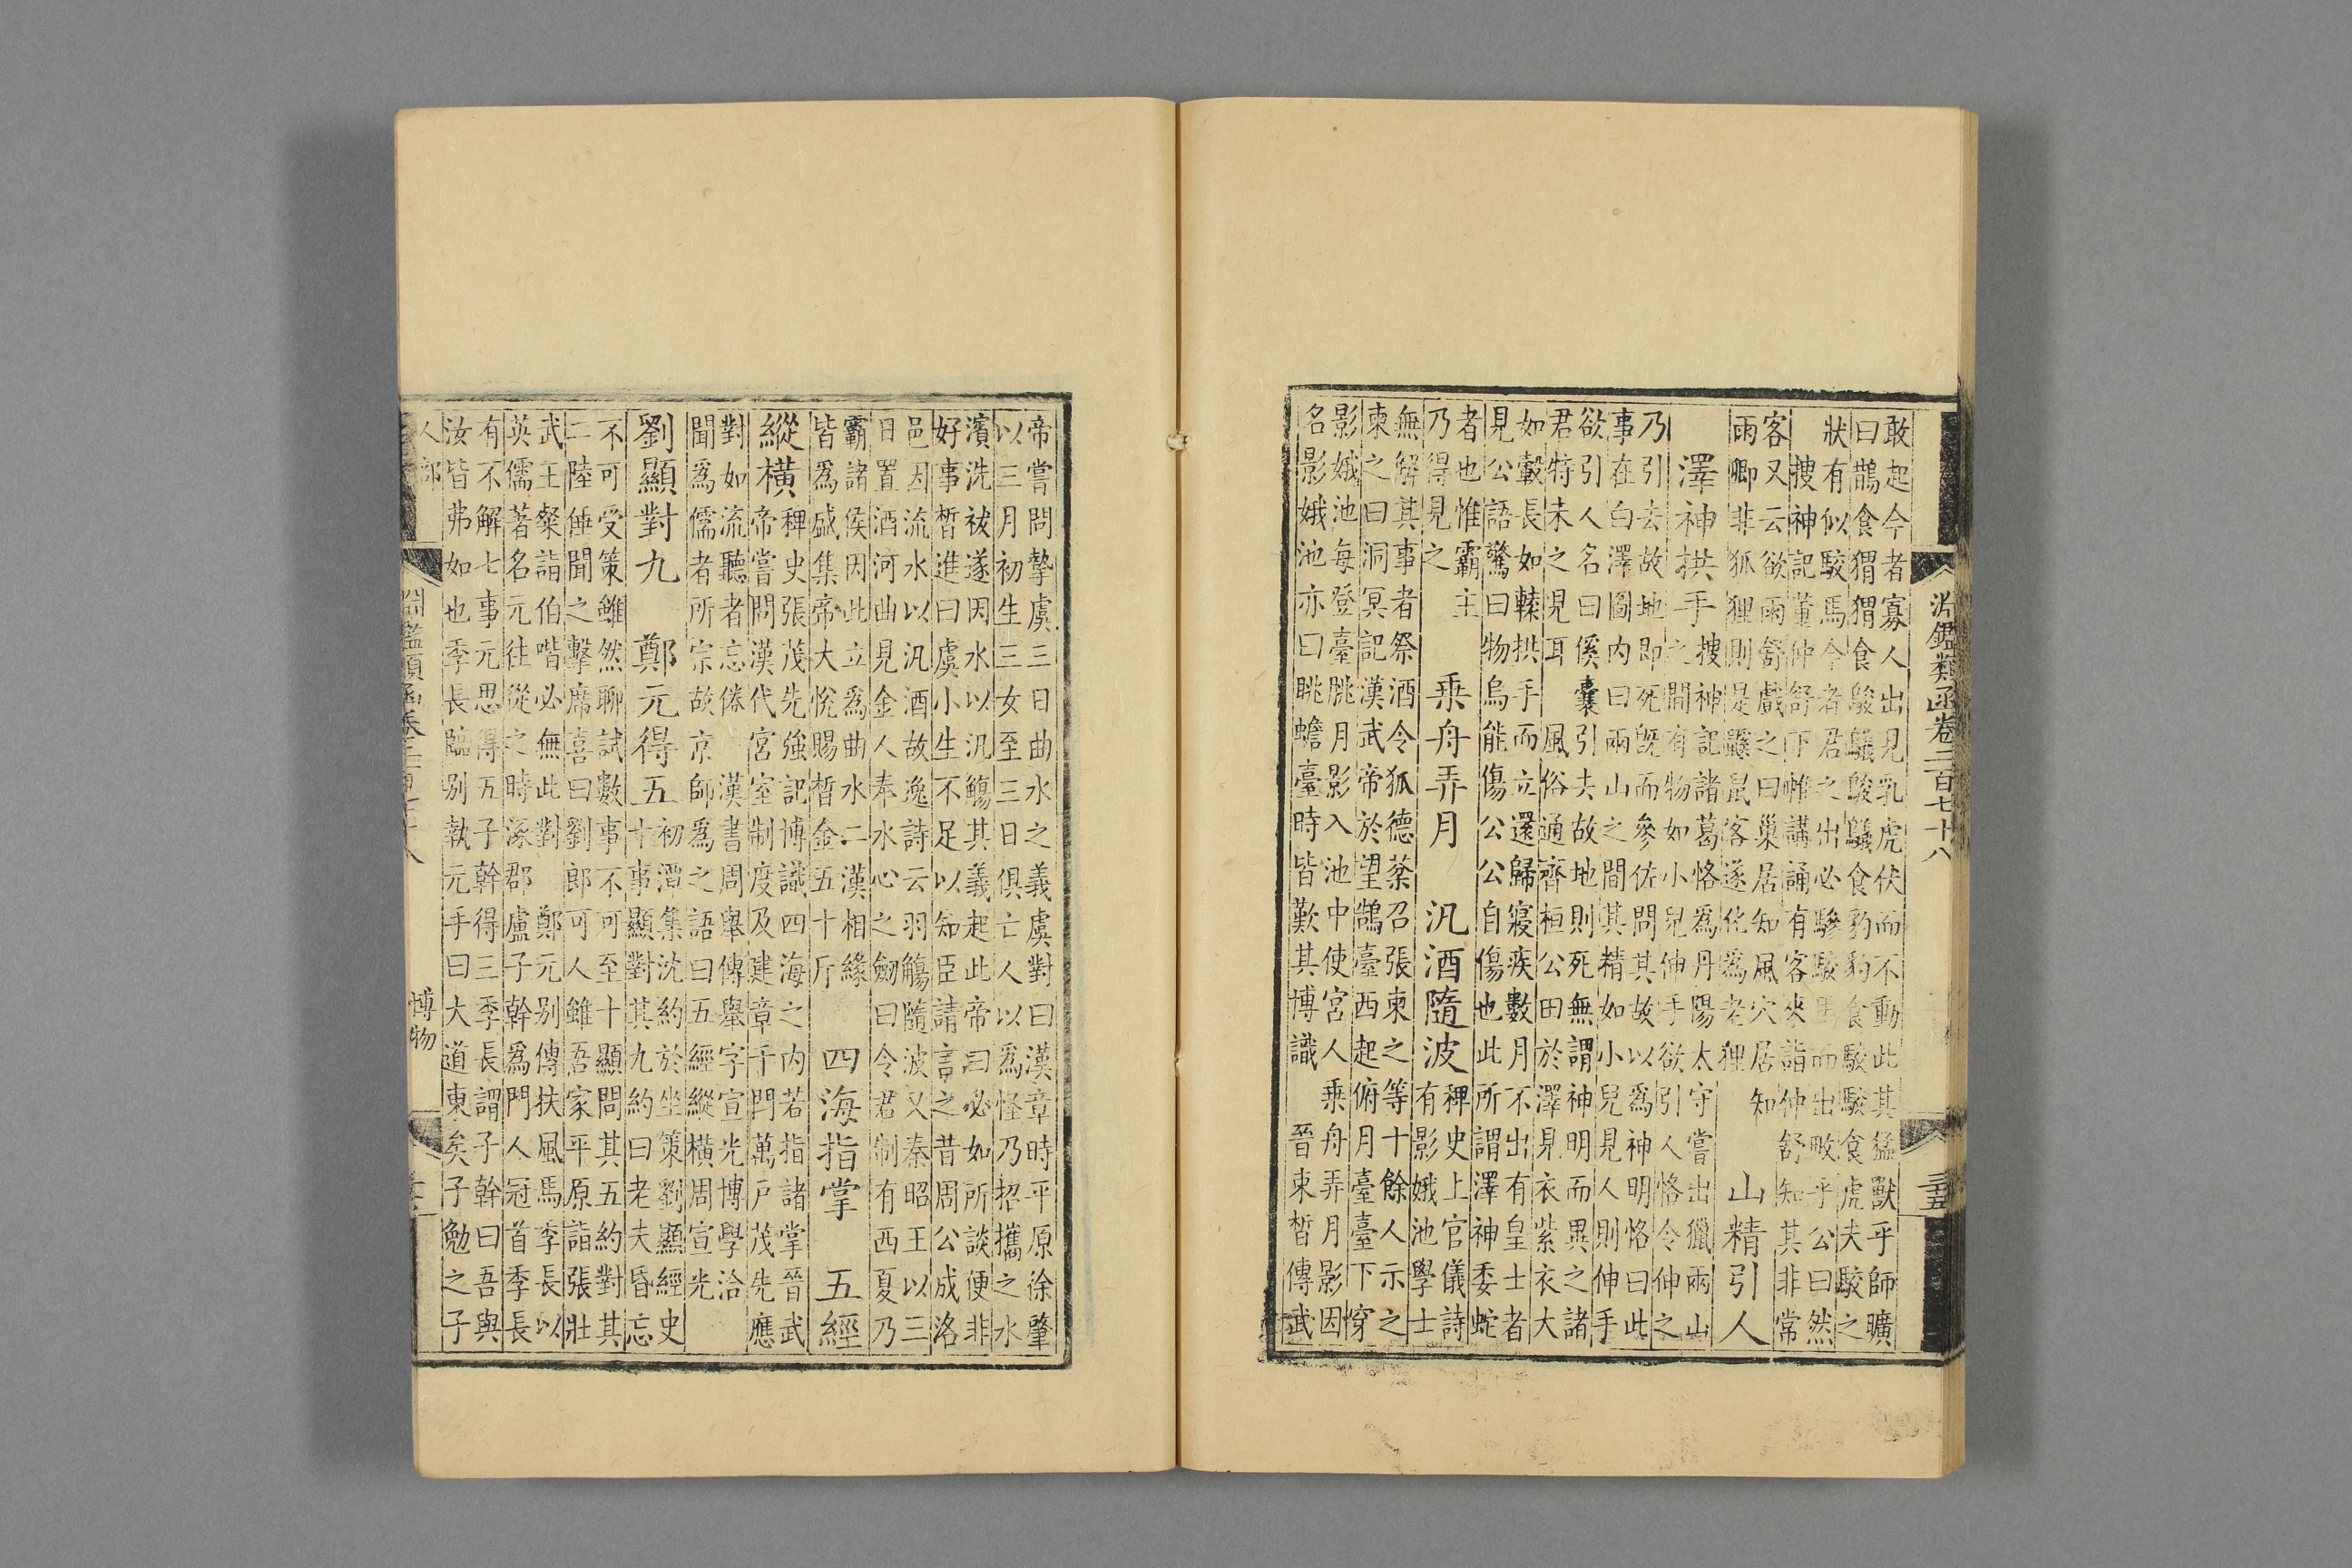 淵鑑類函卷三百七十八
三五
敢起今者寡人出見乳虎伏而不動此其猛獸乎師曠
曰鵲食猬猬食鵔鸃鵔鸃食豹豹食駮駮食虎夫駮之
狀有似駮馬今者君之出必驂駮馬而出畋乎公曰然
搜神記董仲舒下帷講誦有客來詣仲舒知其非常
客又云欲雨舒戲之曰巢居知風穴居知
雨卿非狐狸則是鼷鼠客遂化爲老狸
山精引人
澤神拱手
搜神記諸葛恪爲丹陽太守嘗出獵兩山
之間有物如小兒伸手欲引人恪令伸之
乃引去故地即死旣而參佐問其故以爲神明恪曰此
事在白澤圖內曰兩山之間其精如小兒見人則伸手
欲引人名曰傒囊引去故地則死無謂神明而異之諸
君特未之見耳 風俗通齊桓公田於澤見衣紫衣大
如轂長如轅拱手而立還歸寢疾數月不出有皇士者
見公語驚曰物烏能傷公公自傷也此所謂澤神委蛇
者也惟霸主
乃得見之
乘舟弄月 汎酒隨波
稗史上官儀詩
有影娥池學士
無解其事者祭酒令狐德棻召張柬之等十餘人示之
柬之曰洞冥記漢武帝於望鵠臺西起俯月臺臺下穿
影娥池每登臺眺月影入池中使宮人乘舟弄月影因
名影娥池亦曰眺蟾臺時皆歎其博識 晉束皙傳武
帝嘗問摯虞三日曲水之義虞對曰漢章時平原徐肇
以三月初生三女至三日俱亡人以爲怪乃招攜之水
濱洗祓遂因水以汎觴其義起此帝曰必如所談便非
好事皙進曰虞小生不足以知臣請言之昔周公成洛
邑因流水以汎酒故逸詩云羽觴隨波又秦昭王以三
日置酒河曲見金人奉水心之劒曰令君制有西夏乃
霸諸侯因此立爲曲水二漢相緣
皆爲盛集帝大悅賜皙金五十斤
四海指掌 五經
縱橫
稗史張茂先強記博識四海之内若指諸掌晉武
帝嘗問漢代宮室制度及建章千門萬戶茂先應
對如流聽者忘倦 漢書周舉傳舉字宣光博學洽
聞爲儒者所宗故京師爲之語曰五經縱橫周宣光
劉顯對九 鄭元得五
初潭集沈約於坐策劉顯經史
十事顯對其九約曰老夫昏忘
不可受策雖然聊試數事不可至十顯問其五約對其
二陸倕聞之擊席喜曰劉郎可人雖吾家平原詣張壯
武王粲詣伯喈必無此對 鄭元别傳扶風馬季長以
英儒著名元往從之時涿郡盧子幹爲門人冠首季長
有不解七事元思得五子幹得三季長謂子幹曰吾與
汝皆弗如也季長臨别執元手曰大道東矣子勉之子
人部
淵鑑類函卷三百七十八
博物